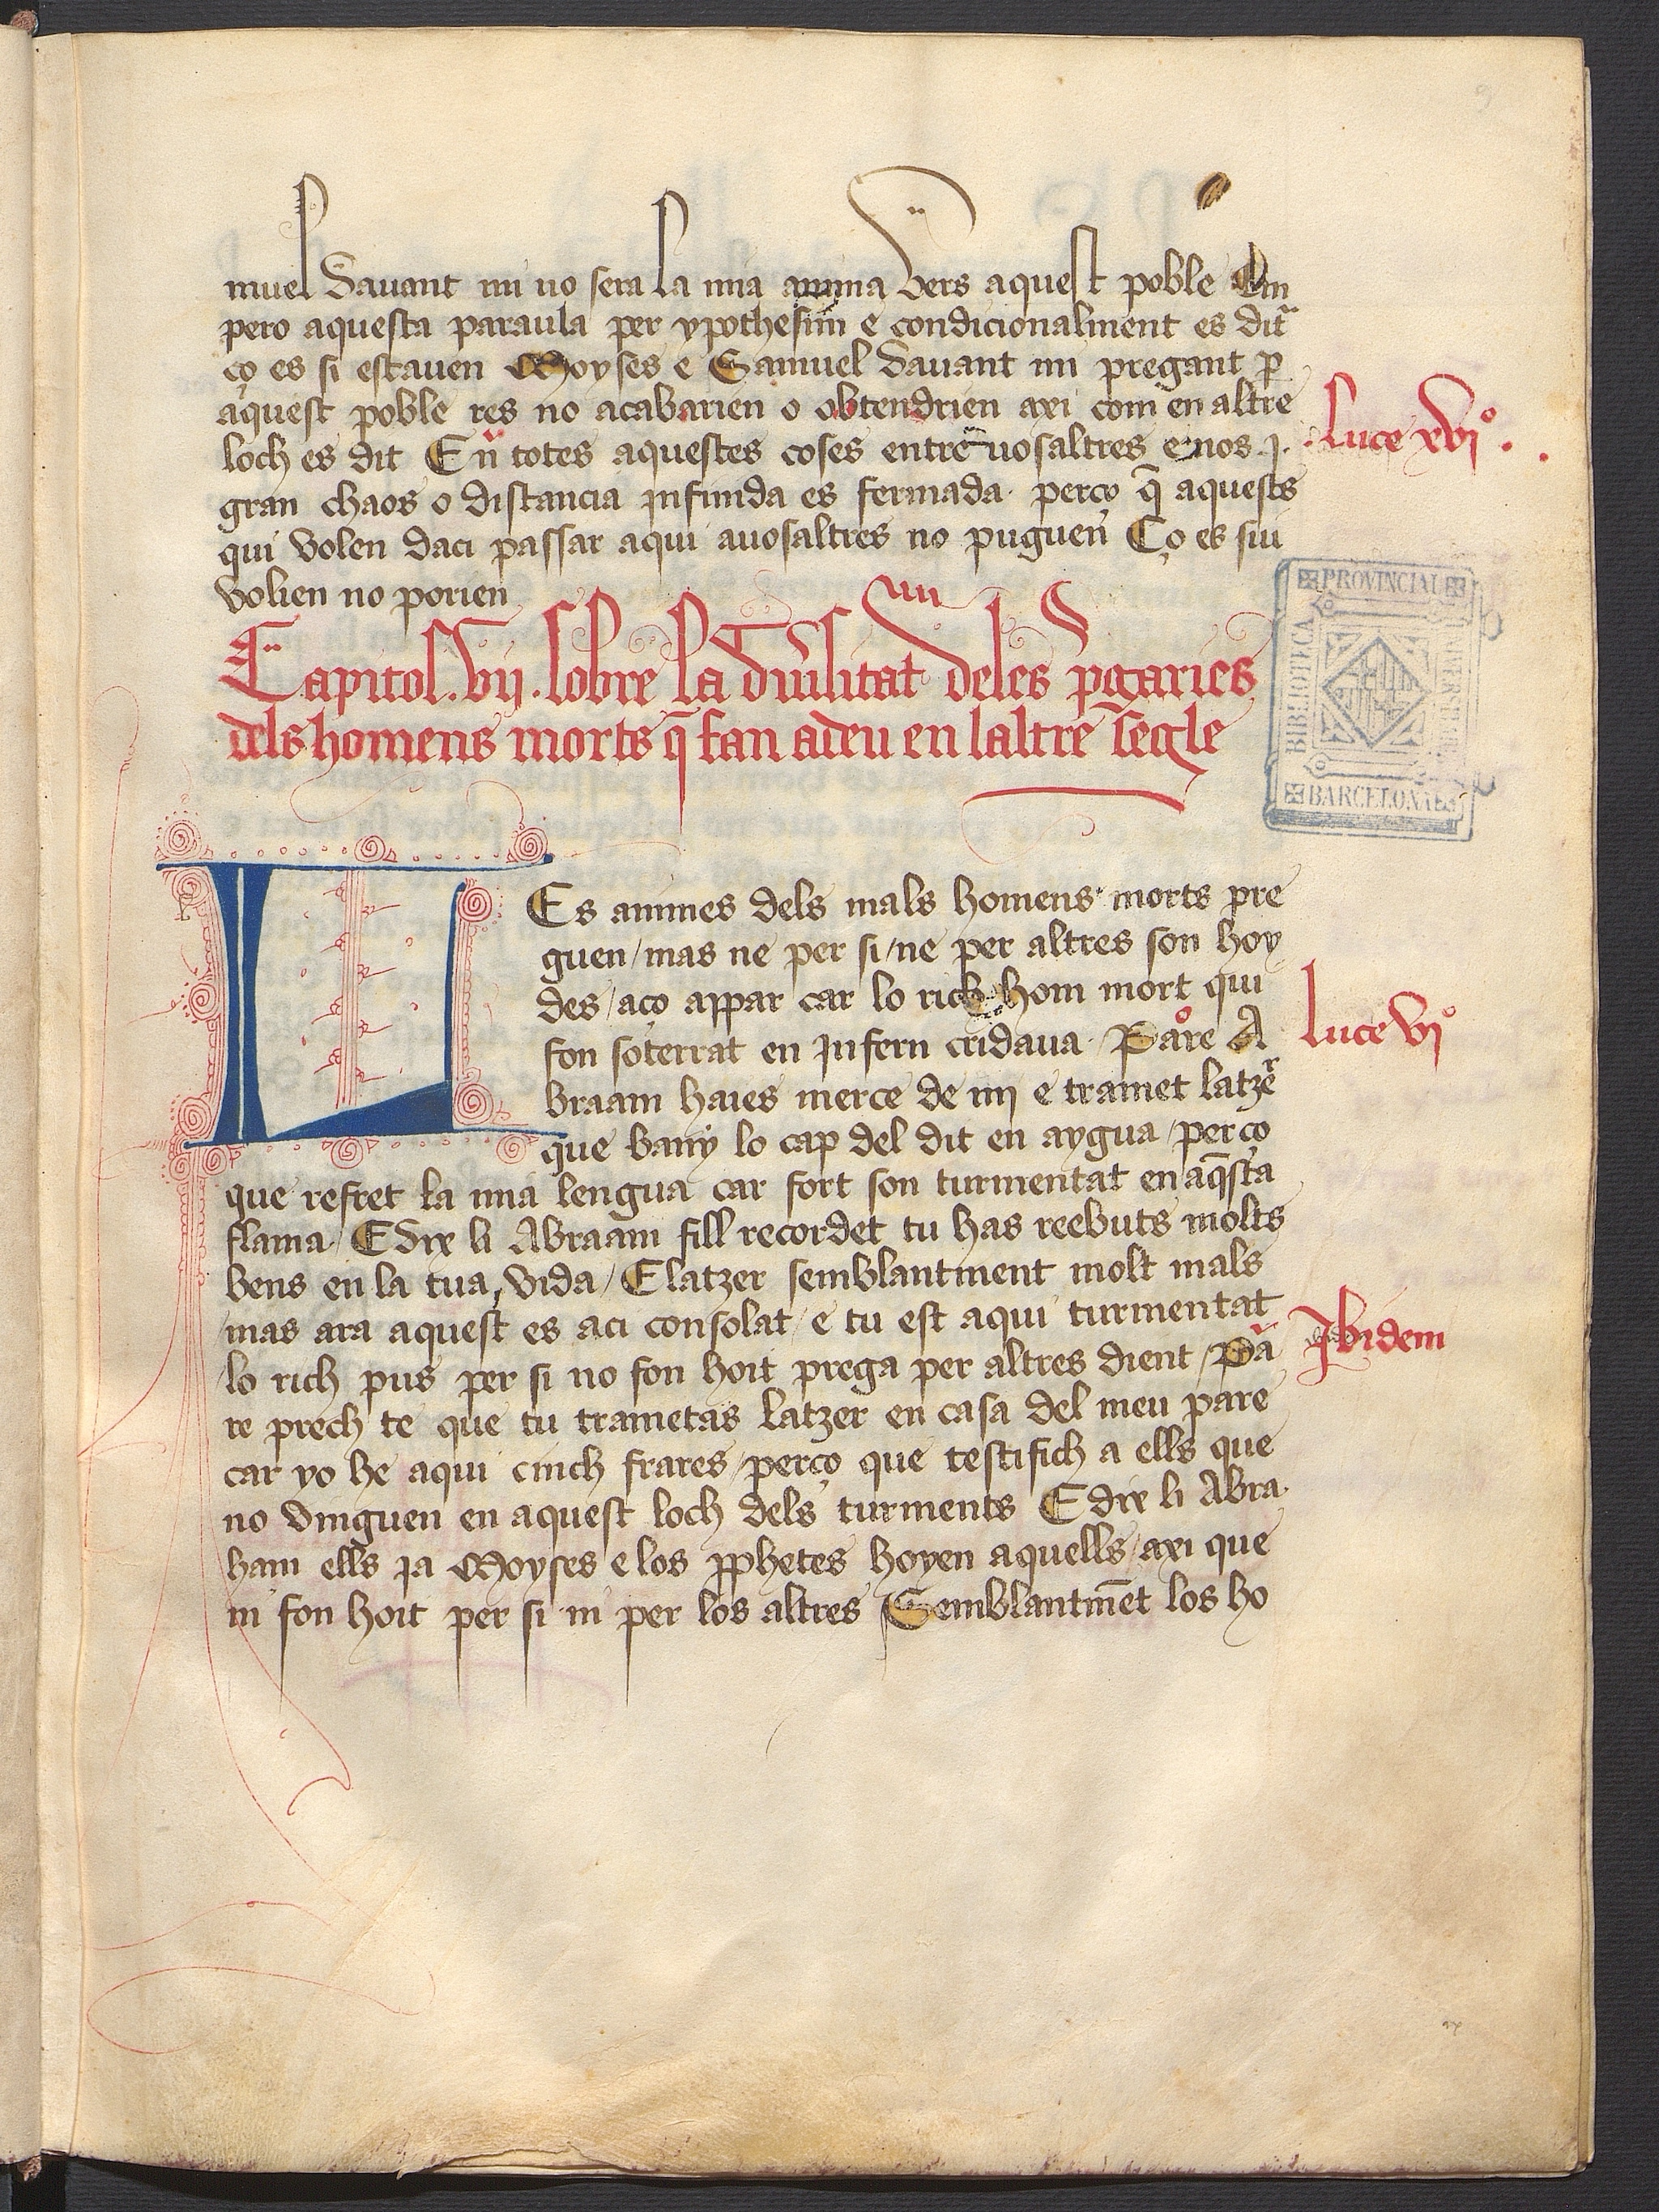 9
muel davant mi no sera la mia anima vers aquest poble Em
pero aquesta paraula per ypothesim e condicionalment es dit
ço es si estaven Moyses e Samuel davant mi pregant p̱
aquest poble res no acabarien o obtendrien axi com en altre
loch es dit En totes aquestes coses entre vosaltres e nos .j.
.luce xvi°.
gran chaos o distancia infinida es fermada. perço q̄ aquests
qui volen daci passar aqui avosaltres no puguen Ço es sin
volien no porien
Capitol .vij. sobre la dīulitat deles p̄garies
dels homens morts q̄ fan adeu en laltre segle
BIBLIOTECA PROVINCIAL UNIVERSITARIA BARCELONA
LEs animes dels mals homens morts pre
guen/mas ne per si/ne per altres son hoy
des/aço appar car lo rich hom mort qui
fon soterrat en infern cridava. Pare A
luce vi°
braam haies merce de mi e tramet latzer̄
que bany lo cap del dit en aygua/perço
que refret la mia lengua car fort son turmentat en aq̄sta
flama/ E dix li Abraam fill recordet tu has reebuts molts
bens en la tua vida/ E latzer semblantment molt mals
/mas ara aquest es aci consolat/e tu est aqui turmentat
Ibidem
lo rich pus per si no fon hoit prega per altres dient/Pa
re prech te que tu trametas latzer en casa del meu pare
car yo he aqui cinch frares/perço que testifich a ells que
no vinguen en aquest loch dels turments E dix li Abra
ham ells ja Moyses e los p̱phetes hoyen aquells/axi que
ni fon hoit per si ni per los altres Semblantmēt los ho